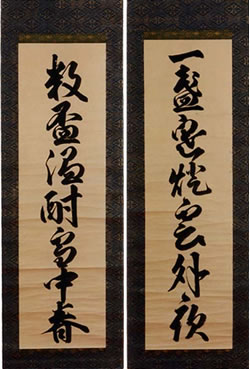 一盞寒燈雲外夜
数盃温酎雪中春